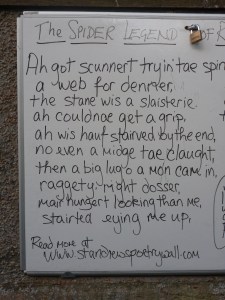 The Spider Legend of R
Ah got scunnert tryin' tae spin
a web for denner,
the stane wis a slaisterie
ah couldnae get a grip,
ah wis hauf stairved by the end,
no even a midge tae claught,
then a big lug o a mon cam in,
raggety, right dosser,
mair hungert looking than me,
stairted eying me up,
Read more at
www.standrewspoetrywall.com